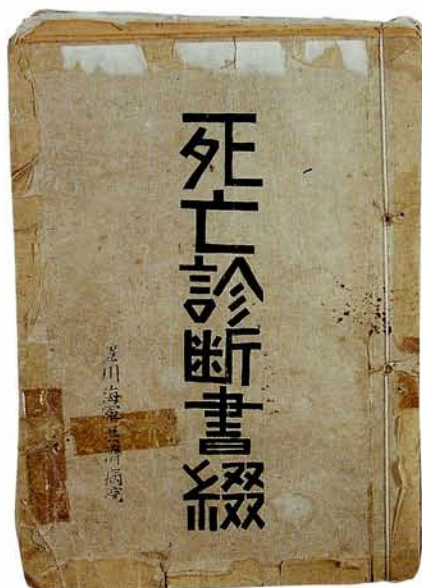 死亡診断書綴
豊川海軍共済病院